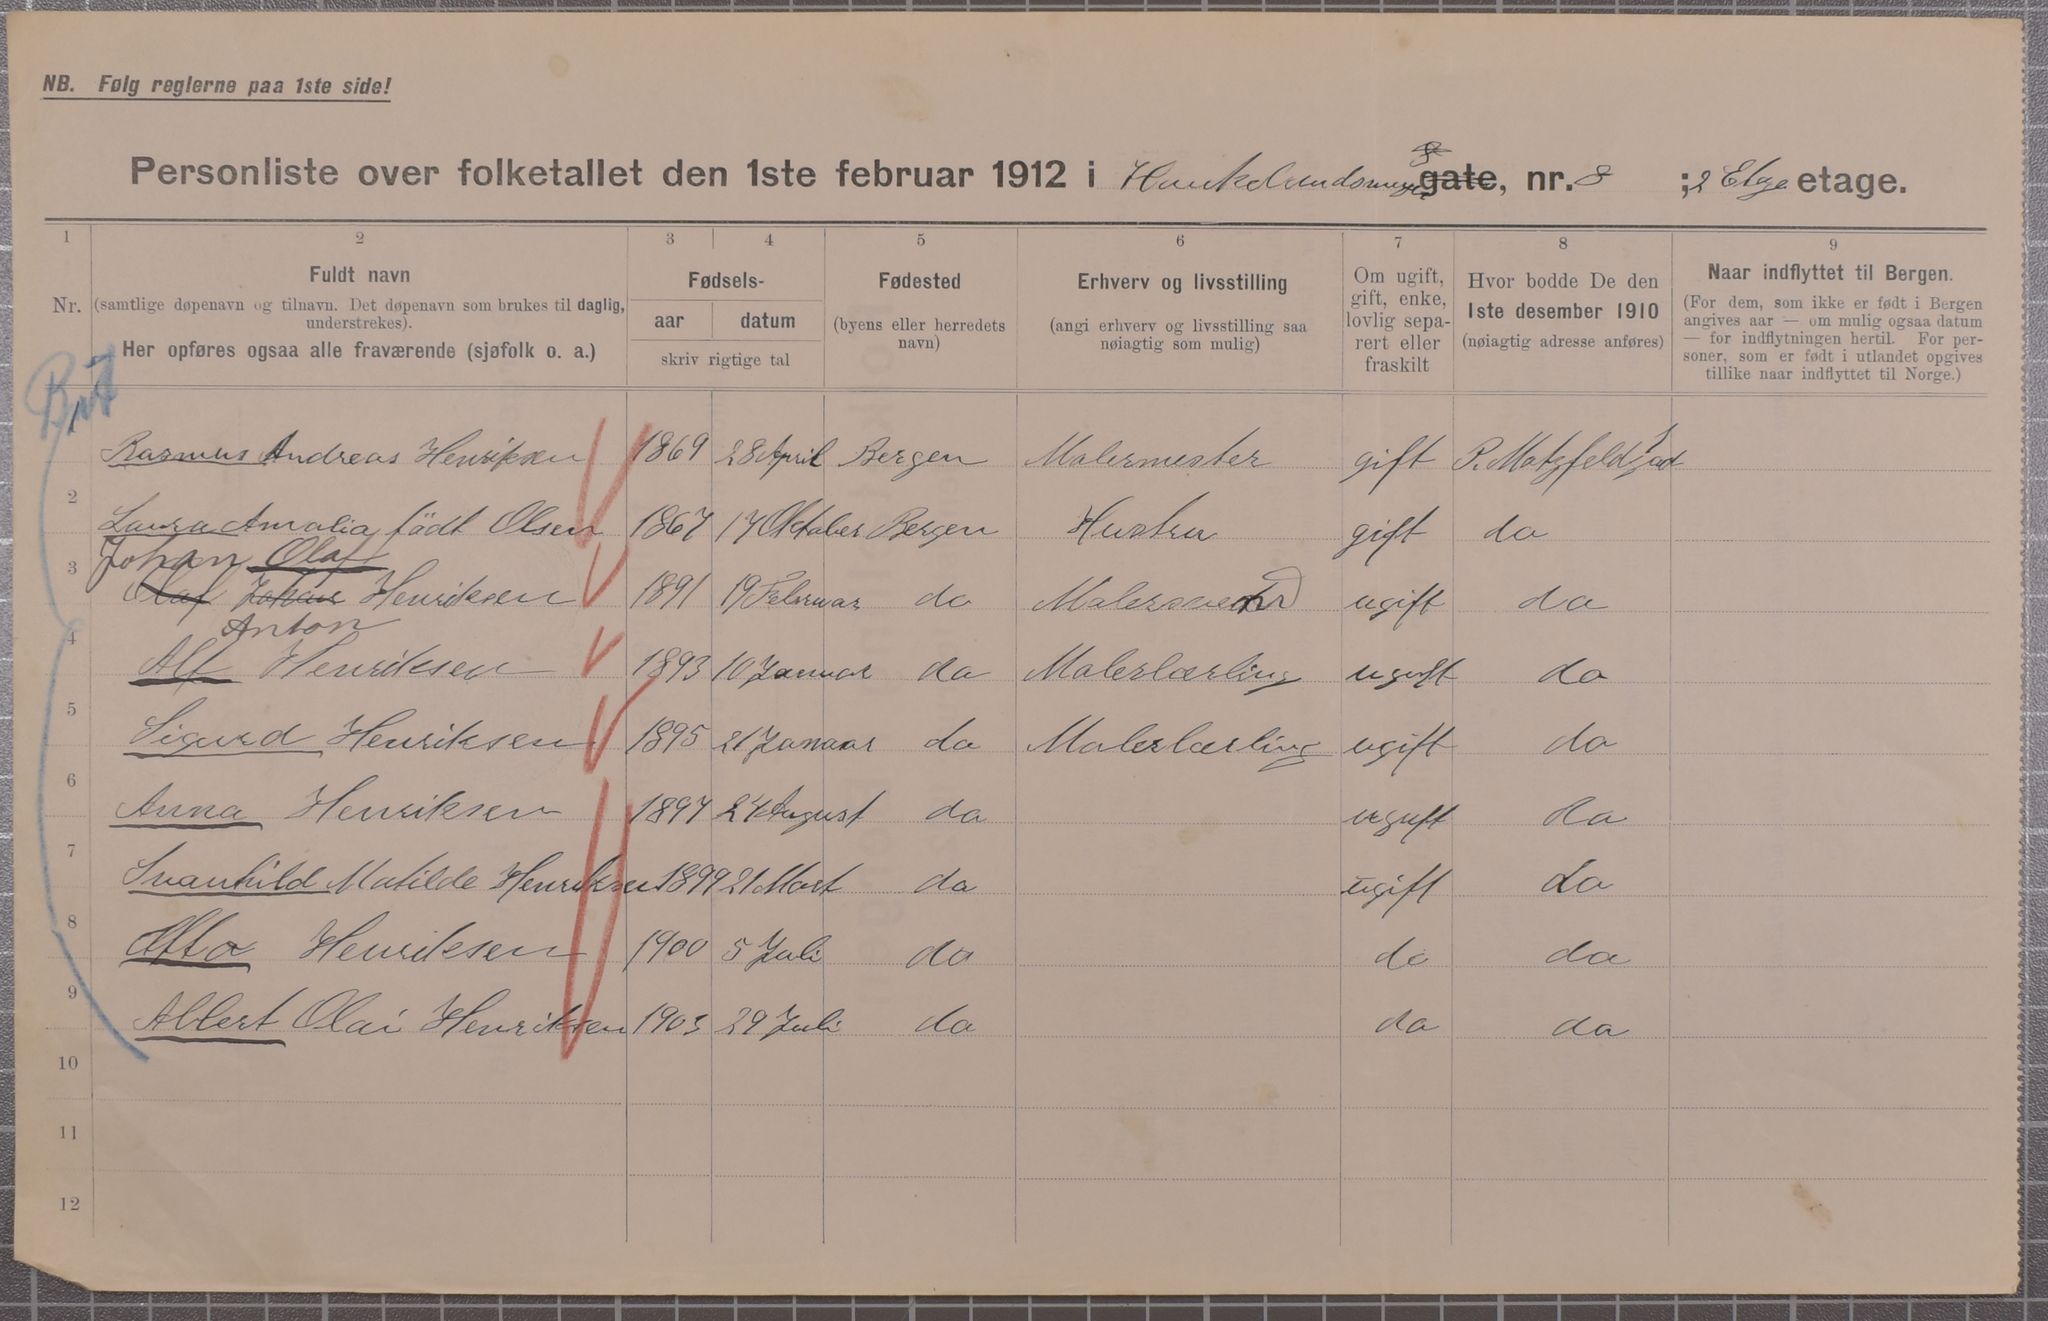 NB. Følg reglerne paa 1ste side!
Personliste over folketallet den 1ste februar 1912 i Haukelandsveien gate, nr. 8 ; 2 Etge etage.
1 2 3 4 5 6 7 8 9
Nr.
Fuldt navn
(samtlige døpenavn og tilnavn. Det døpenavn som brukes til daglig, understrekes).
Her opføres ogsaa alle fraværende (sjøfolk o. a.)
Fødsels-
aar datum
skriv rigtige tal
Fødested
(byens eller herredets
navn)
Erhverv og livsstilling
(angi erhverv og livsstilling saa
nøiagtig som mulig)
Om ugift,
gift, enke,
lovlig sepa-
rert eller
fraskilt
Hvor bodde De den
1ste desember 1910
(nøiagtig adresse anføres)
Naar indflyttet til Bergen.
(For dem, som ikke er født i Bergen
angives aar — om mulig ogsaa datum
— for indflytningen hertil. For per-
soner, som er født i utlandet opgives
tillike naar indflyttet til Norge.)
Rasmus Andreas Henriksen 1869 28 April Bergen Malermester gift P. Motzfeldsgad
2 Laura Amalia födt Olsen 1867 17 Oktober Bergen Hustru gift do
Johan Olaf
3 Olaf Johan Henriksen 1891 19 Februar do ugift do
Anton
4 Alf Henriksen 1893 10 Januar do Malerlærling ugift do
5 Sigurd Henriksen 1895 21 Januar do Malerlærling ugift do
6 Anna Henriksen 1897 24 August do ugift do
7 Svanhild Matilde Henriksen 1899 21 Mart do ugift do
8 Otto Henriksen 1900 5 Juli do do do
9 Albert Olai Henriksen 1903 29 Juli do do do
10
11
12